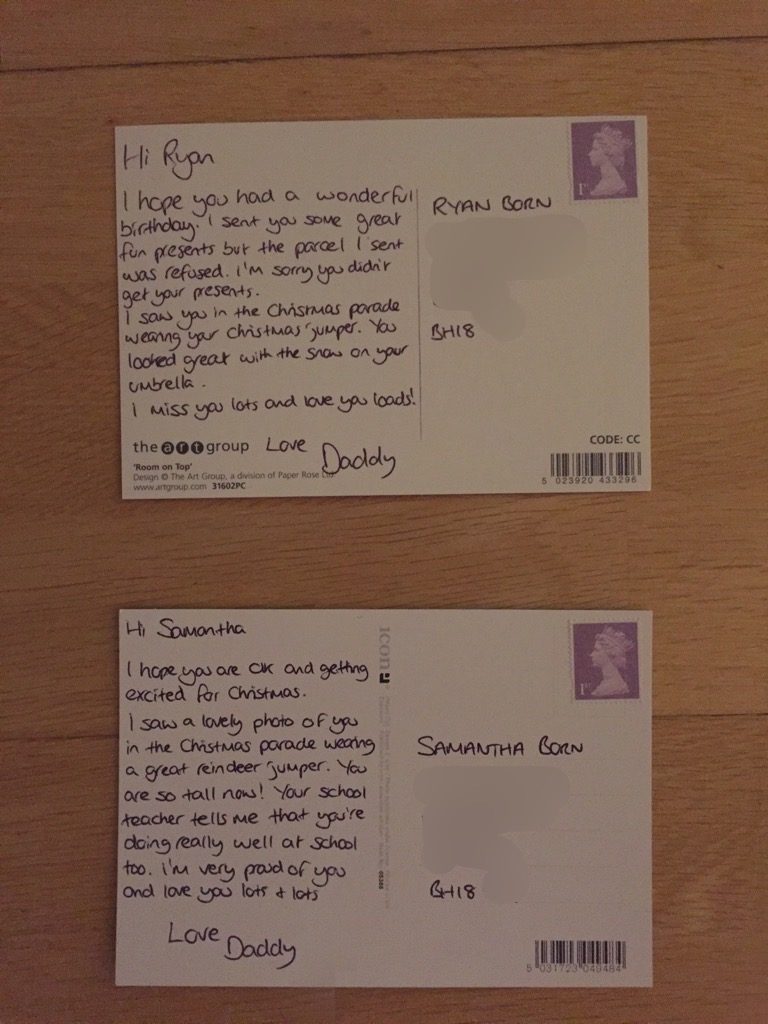 Hi Ryan
I hope you had a wonderful
birthday. I sent you some great
fun presents but the parcel I sent
was refused. I'm sorry you didn't
get your presents.
I saw you in the Christmas parade
wearing your Christmas jumper. You
looked great with the snow on your
umbrella.
I miss you lots and love you loads!
Love
Daddy
the art group
'Room on Top'
Design © The Art Group, a division of Paper Rose Ltd
www.artgroup.com 31602PC
1st
RYAN BORN
BH18
CODE: CC
5 023920 433296
Hi Samantha
I hope you are OK and getting
excited for Christmas.
I saw a lovely photo of you
in the Christmas parade wearing
a great reindeer jumper. You
are so tall now! Your school
teacher tells me that you're
doing really well at school
too. I'm very proud of you
and love you lots & lots
Love
Daddy
icon
1st
SAMANTHA BORN
BH18
5 031723 049484